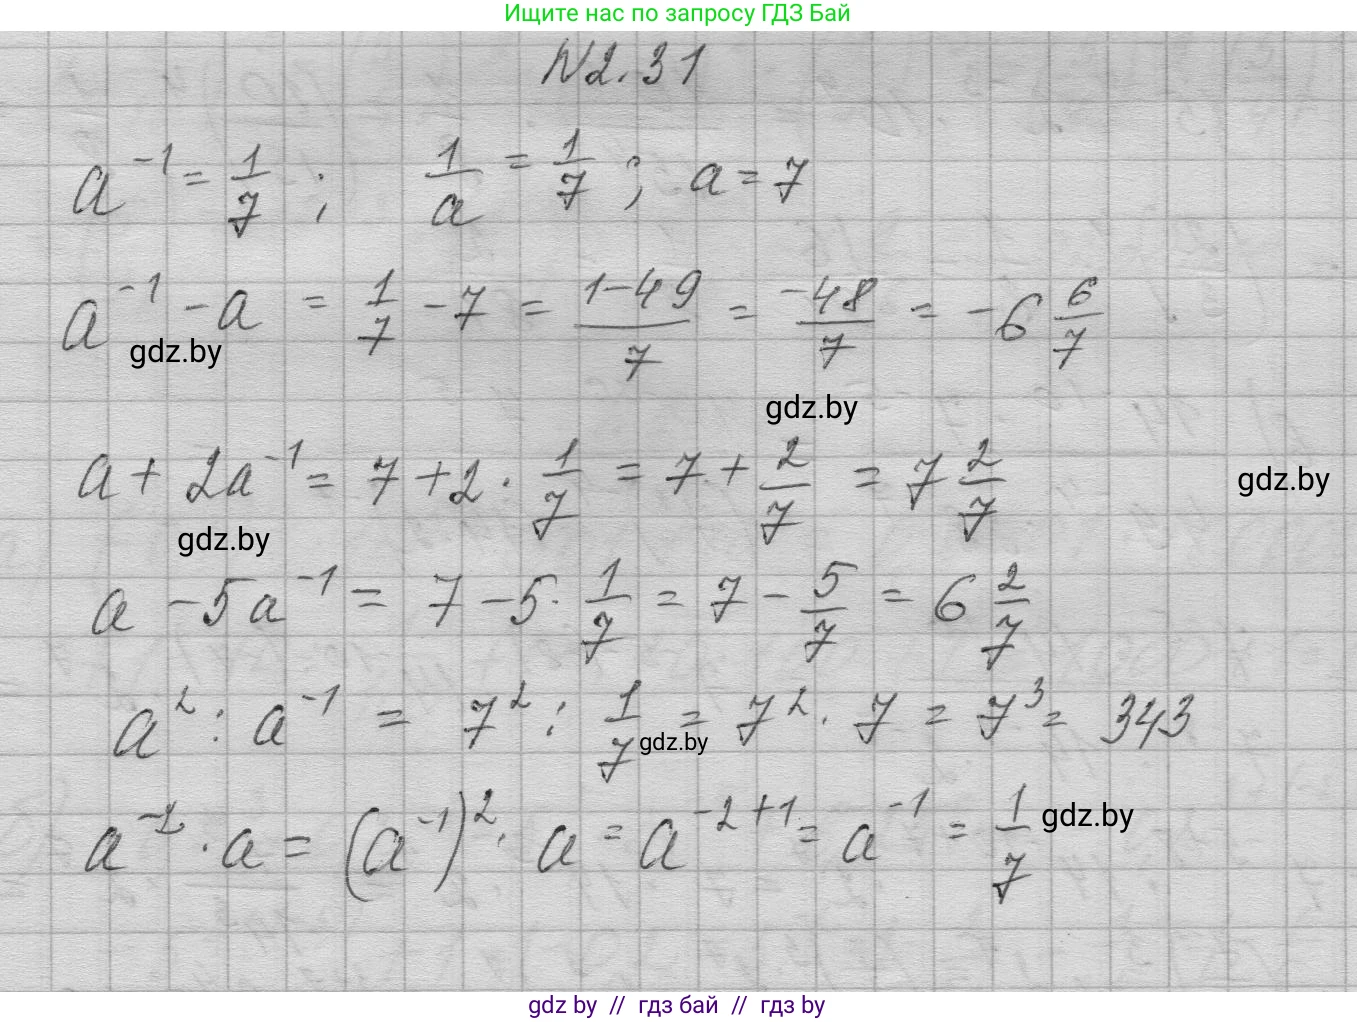 Ищите нас по запросу ГДЗ Бай
N2.31
a⁻¹ = 1/7 ; 1/a = 1/7 ; a = 7
a⁻¹ - a = 1/7 - 7 = (1-49)/7 = -48/7 = -6 6/7
gdz.by
gdz.by
a + 2a⁻¹ = 7 + 2 · 1/7 = 7 + 2/7 = 7 2/7
gdz.by
gdz.by
a - 5a⁻¹ = 7 - 5 · 1/7 = 7 - 5/7 = 6 2/7
a² : a⁻¹ = 7² : 1/7 = 7² · 7 = 7³ = 343
gdz.by
a⁻² · a = (a⁻¹)² · a = a⁻²⁺¹ = a⁻¹ = 1/7
gdz.by
gdz by // гдз бай // гдз by